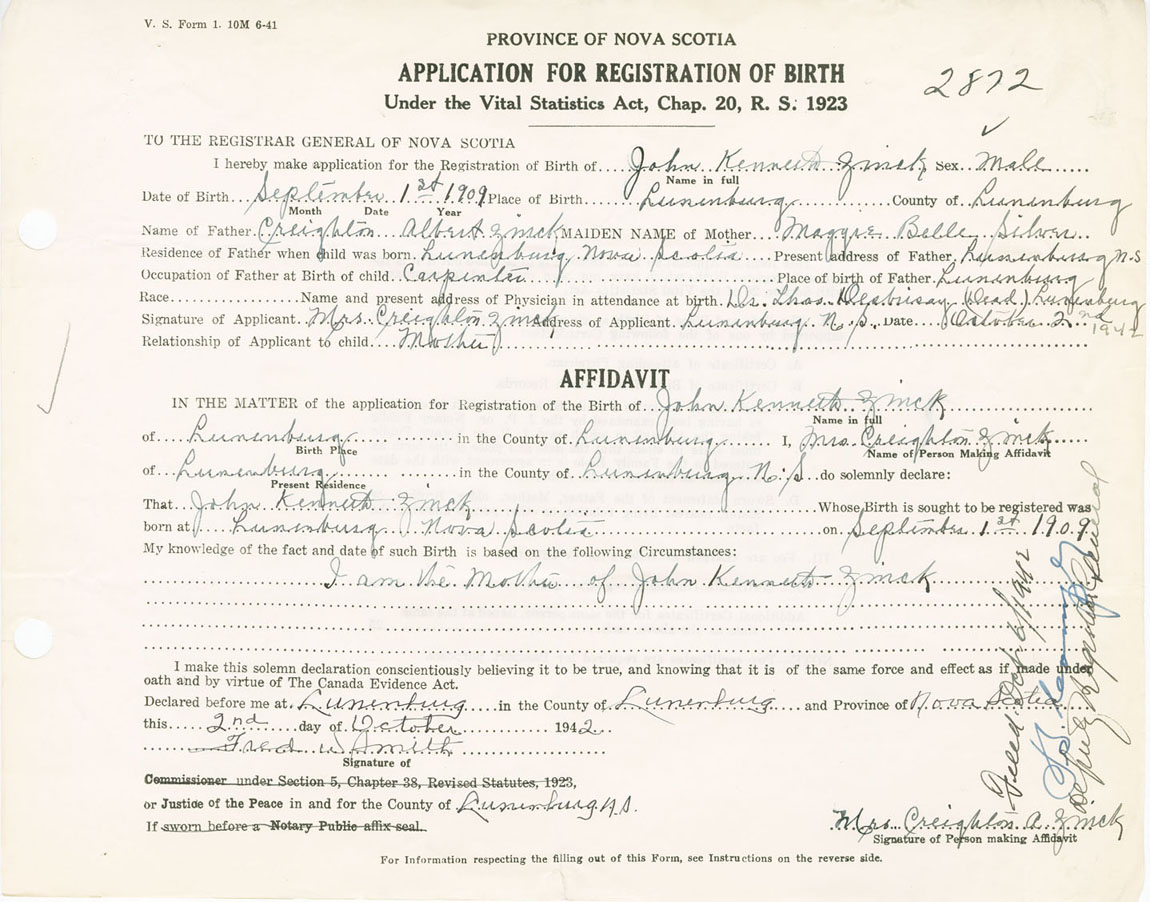 V. S. Form 1. 10M 6-41
PROVINCE OF NOVA SCOTIA
APPLICATION FOR REGISTRATION OF BIRTH
2872
Under the Vital Statistics Act, Chap. 20, R. S. 1923
TO THE REGISTRAR GENERAL OF NOVA SCOTIA
I hereby make application for the Registration of Birth of John Kenneth Zinck Sex Male
Name in full
Date of Birth September 1st 1909 Place of Birth Lunenburg County of Lunenburg
Month Date Year
Name of Father Creighton Albert Zinck MAIDEN NAME of Mother Maggie Belle Silver
Residence of Father when child was born Lunenburg Nova Scotia Present address of Father Lunenburg N.S
Occupation of Father at Birth of child Carpenter Place of birth of Father Lunenburg
Race Name and present address of Physician in attendance at birth Dr. Chas. Desbrisay (Dead) Lunenburg
Signature of Applicant Mrs. Creighton Zinck Address of Applicant Lunenburg N. S. Date October 2nd 1942
Relationship of Applicant to child Mother
AFFIDAVIT
IN THE MATTER of the application for Registration of the Birth of John Kenneth Zinck
Name in full
of Lunenburg in the County of Lunenburg I, Mrs. Creighton Zinck
Birth Place Name of Person Making Affidavit
of Lunenburg in the County of Lunenburg N. S. do solemnly declare:
Present Residence
That John Kenneth Zinck Whose Birth is sought to be registered was
born at Lunenburg Nova Scotia on September 1st 1909
My knowledge of the fact and date of such Birth is based on the following Circumstances:
I am the Mother of John Kenneth Zinck
I make this solemn declaration conscientiously believing it to be true, and knowing that it is of the same force and effect as if made under
oath and by virtue of The Canada Evidence Act.
Declared before me at Lunenburg in the County of Lunenburg and Province of Nova Scotia
this 2nd day of October 1942
Fred W Smith
Signature of
Commissioner under Section 5, Chapter 38, Revised Statutes, 1923,
or Justice of the Peace in and for the County of Lunenburg N.S.
If sworn before a Notary Public affix seal.
Mrs. Creighton A. Zinck
Signature of Person making Affidavit
For Information respecting the filling out of this Form, see Instructions on the reverse side.
Filed Oct 6/1942
Deputy Registrar General